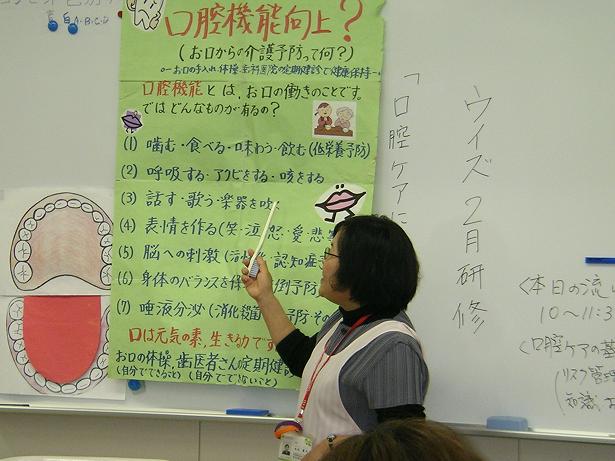 A・B・C・D
口腔機能向上?
(お口からの介護予防って何?)
口腔機能とは、お口の働きのことです。
ではどんなものが有るの?
(1) 噛む・食べる・味わう・飲む(低栄養予防)
(2) 呼吸する・アクビをする・咳をする
(3) 話す・歌う・楽器を吹
(4) 表情を作る(笑・泣・怒・愛・悲
(5) 脳への刺激( 認知症
(6) 身体のバランスを 倒予防
(7) 唾液分泌(消化 予防・その
口は元気の素、生きる力です
お口の体操、歯医者さん定期健
(自分でできること) (自分でできないこと)
ウイズ2月研修
「口腔ケアに
<本日の流
10〜11:3
<口腔ケアの基
リスク管理
知識